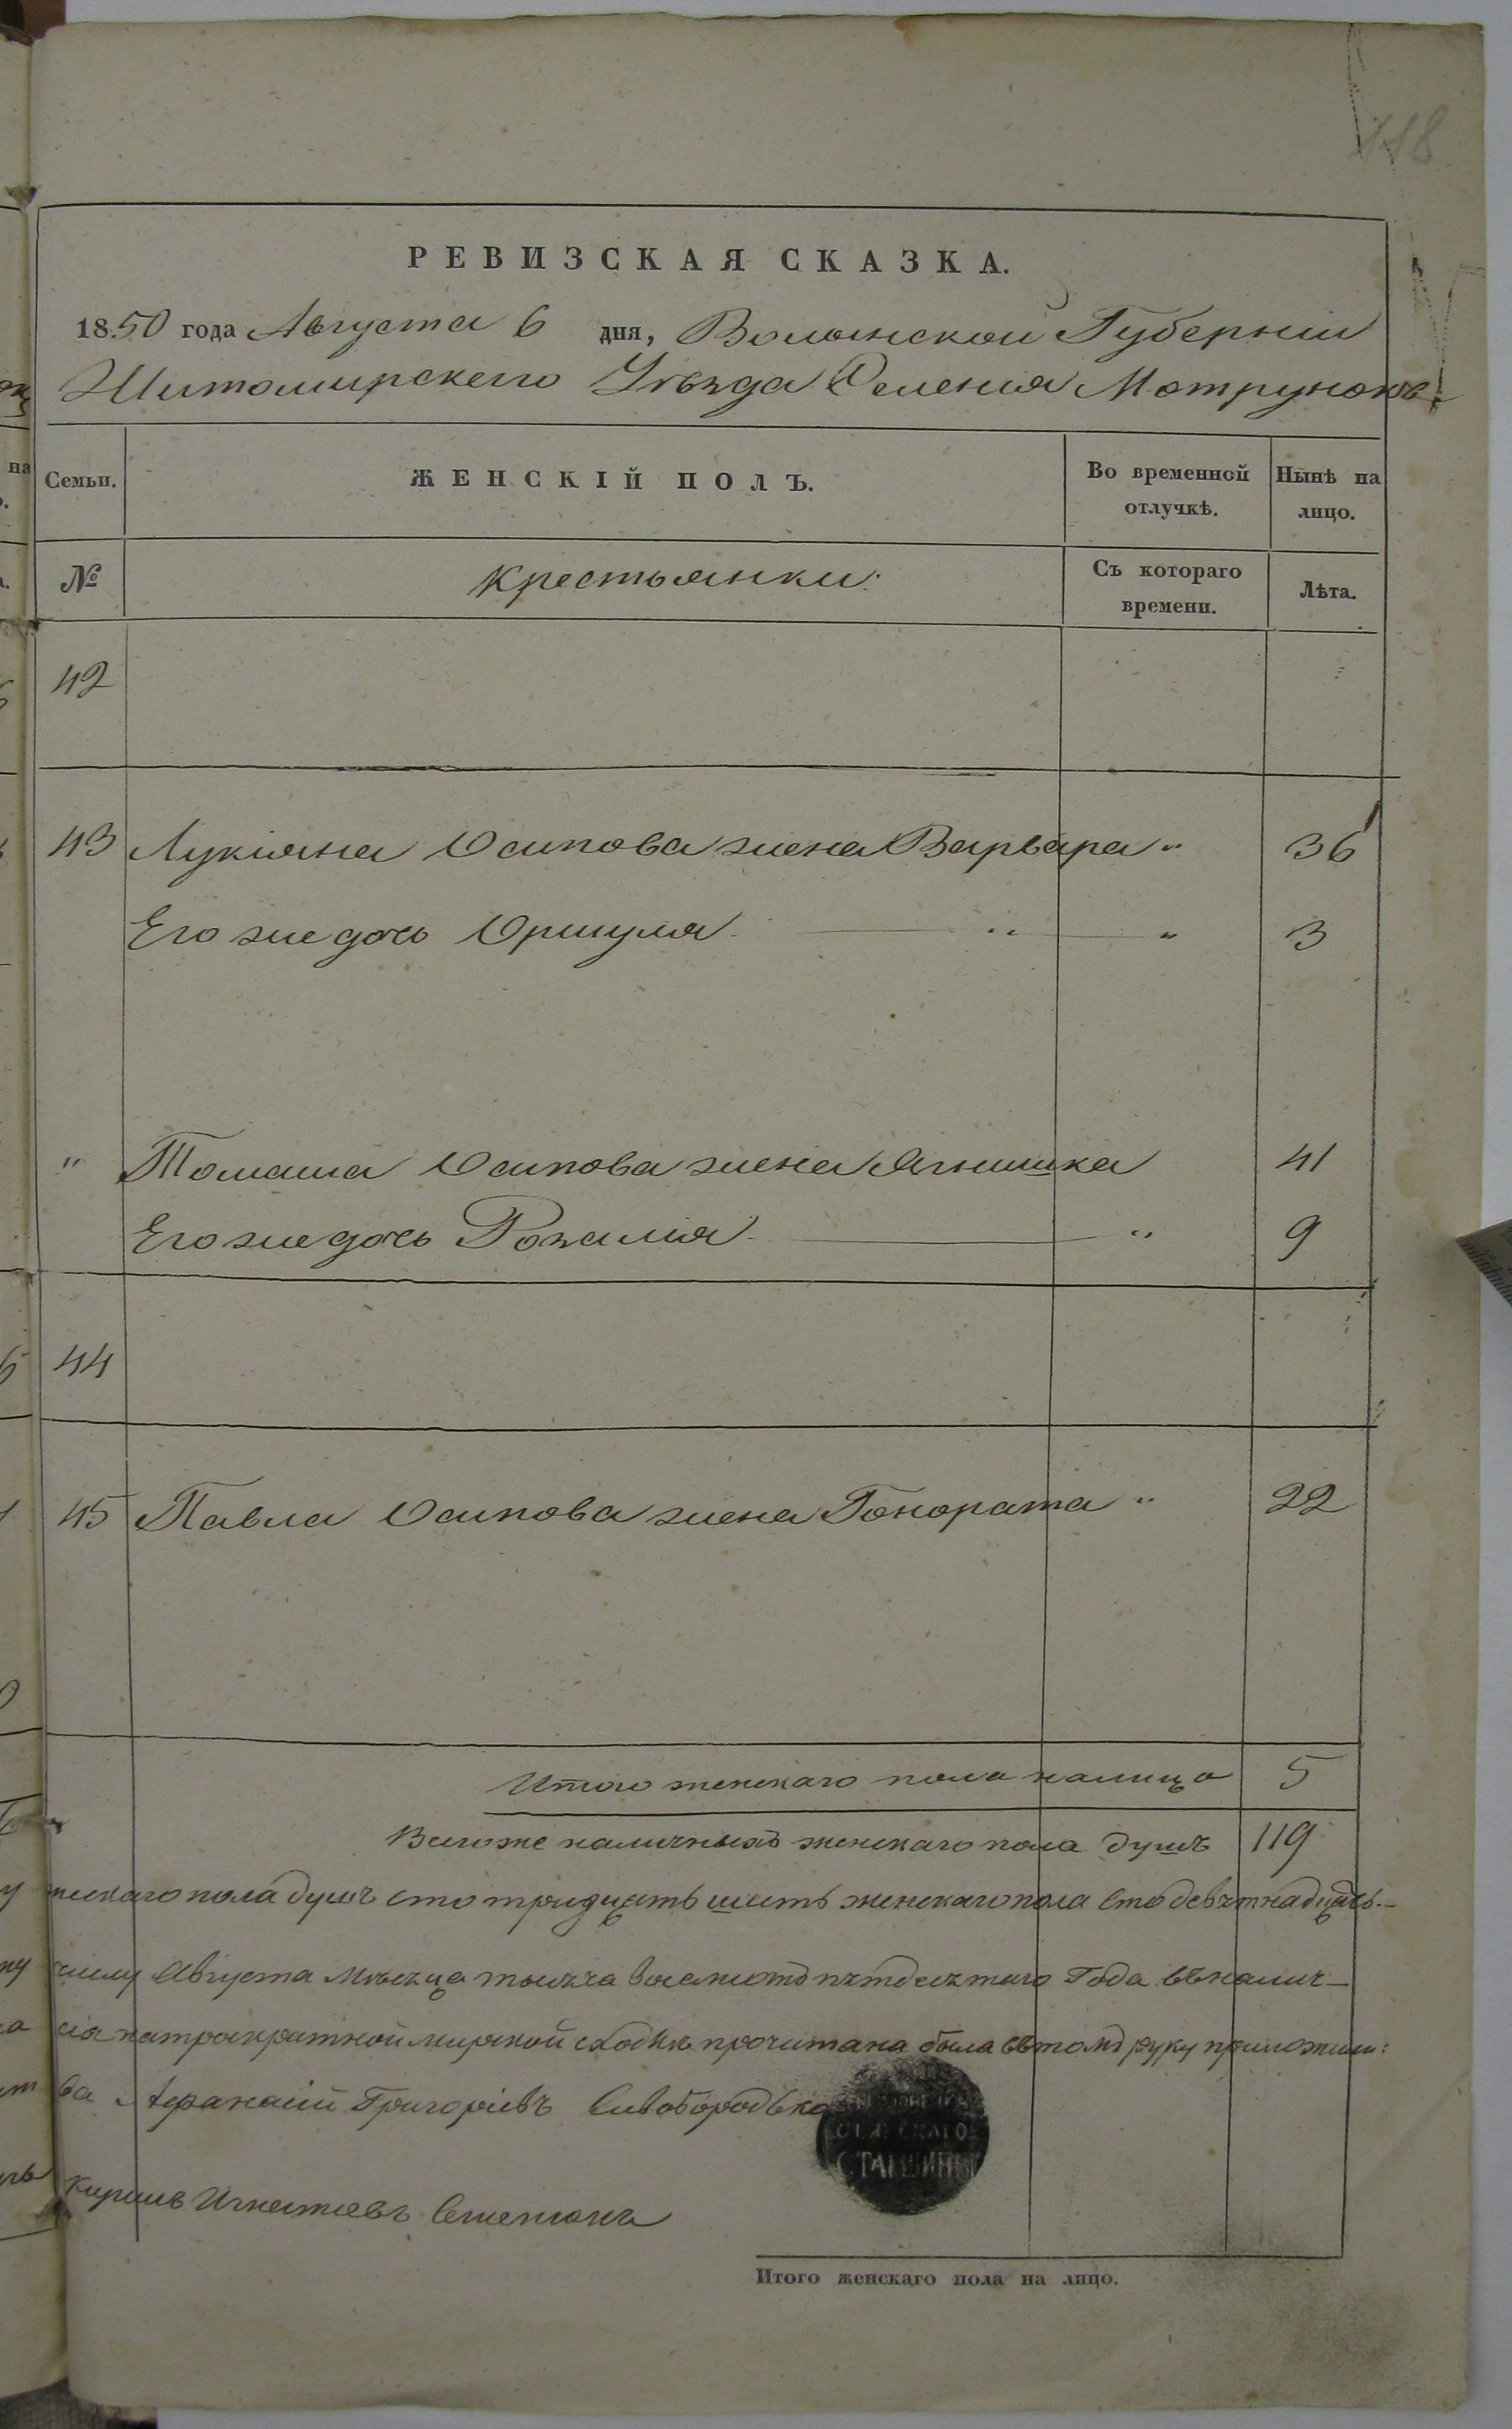 118
РЕВИЗСКАЯ СКАЗКА.
1850 года Августа 6 дня, Волынской Губерніи
Житомирскаго Уѣзда Селенія Мотрунокъ
на
Семьи.
ЖЕНСКІЙ ПОЛЪ.
Во временной отлучкѣ.
Нынѣ на лицо.
№
Крестьянки.
Съ котораго времени.
Лѣта.
42
43 Лукіяна Осипова жена Варвара " 36
Его же дочь Оршуля " " 3
" Томаша Осипова жена Агнишка 41
Его же дочь Розалія " 9
44
45 Павла Осипова жена Гонората " 22
Итого женскаго пола налицо 5
Всего же наличныхъ женскаго пола душъ 119
жескаго пола душъ сто тридцать шесть женскаго пола сто девятнадцать.—
числу Августа Мѣсяца тысяча восемсотъ пятдесятаго Года въ налич—
сія на троекратной мирской сходкѣ прочитана была въ томъ руку приложили:
ва Афанасій Григоріевъ Сивобородько
СЕЛЬСКАГО СТАРШИНЫ
Кирилъ Игнатіевъ
Итого женскаго пола на лицо.